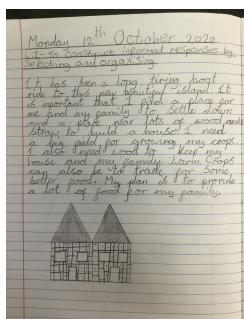 Monday 12th October 2020
L.I-To construct informal responses by
selecting and organising.
It has been a long tiring boat
ride to this new beautiful island. It
is important that I find a place for
me and my family to settle down
and a place near lots of wood and
straw to build a house. I need
a big field for growing my crops.
I also need wood to keep my
house and my family warm. Crops
can also be to trade for some
better food. My plan is to provide
a lot of food for my family.